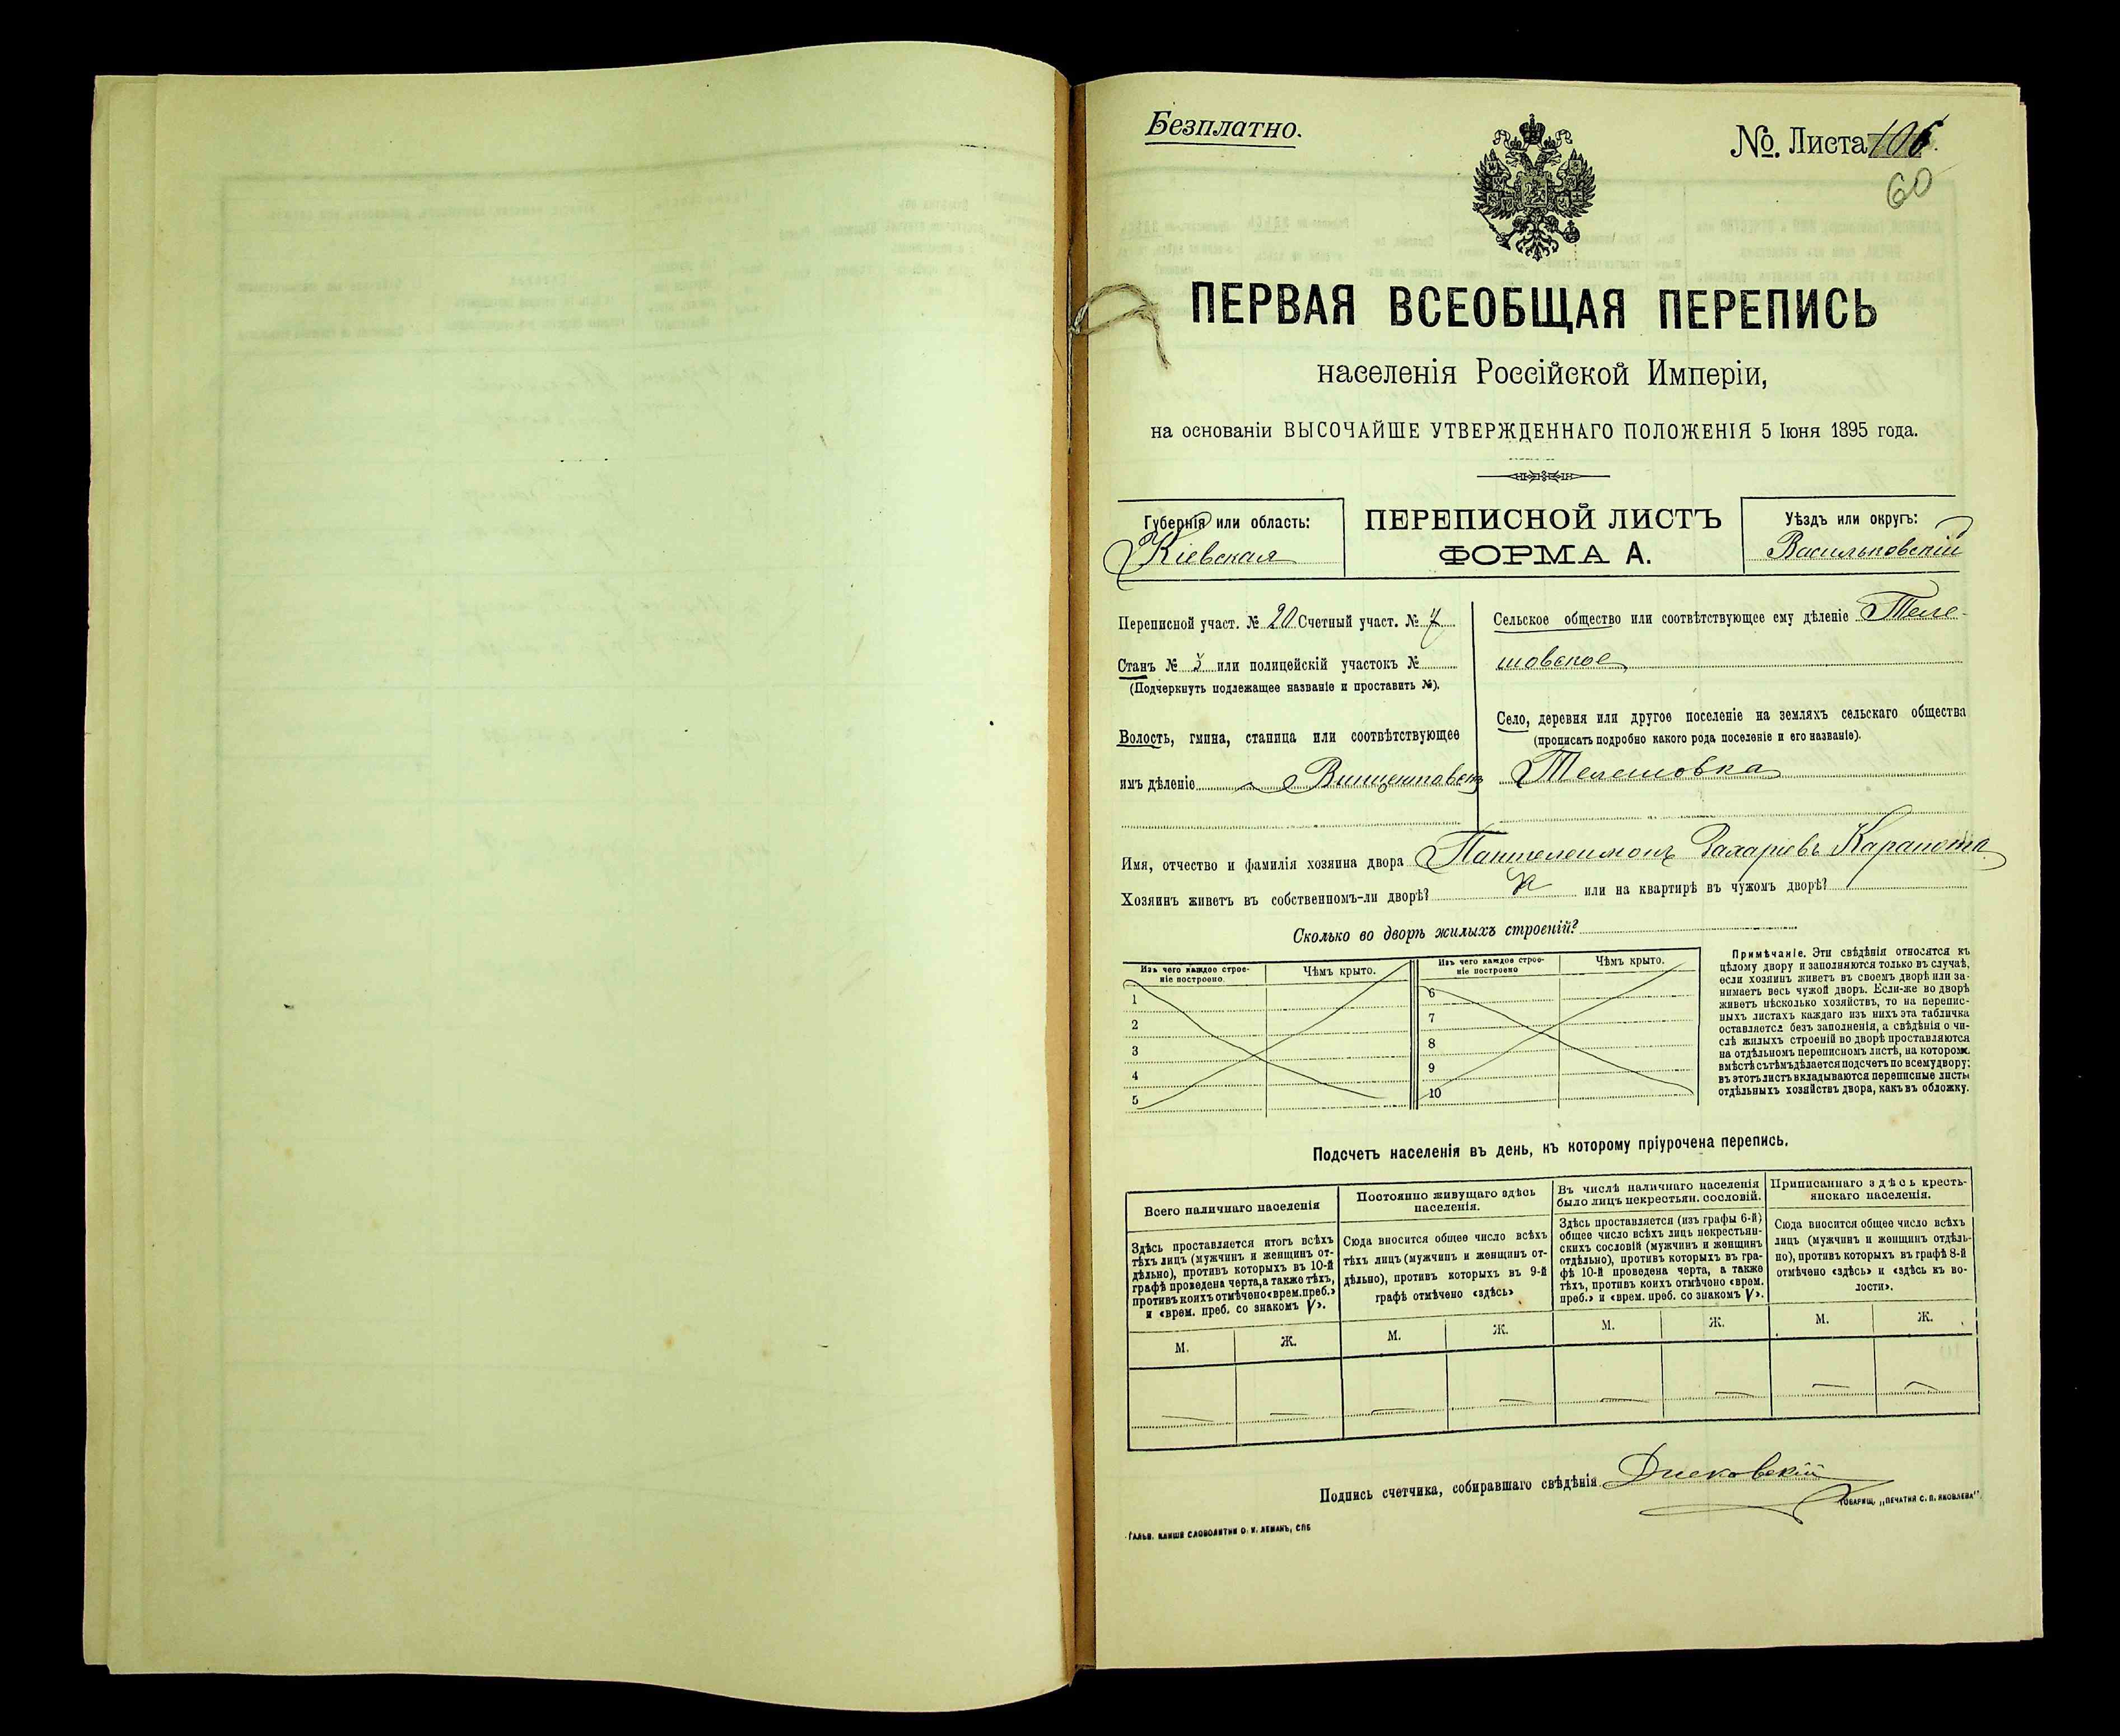 Безплатно.
№. Листа 106.
60
ПЕРВАЯ ВСЕОБЩАЯ ПЕРЕПИСЬ
населенія Россійской Имперіи,
на основаніи ВЫСОЧАЙШЕ УТВЕРЖДЕННАГО ПОЛОЖЕНІЯ 5 Іюня 1895 года.
Губернія или область:
Кіевская
ПЕРЕПИСНОЙ ЛИСТЪ
ФОРМА А.
Уѣздъ или округъ:
Васильковскій
Переписной участ. № 20 Счетный участ. № 7
Станъ № 3 или полицейскій участокъ №
(Подчеркнуть подлежащее названіе и проставить №).
Волость, гмина, станица или соотвѣтствующее
имъ дѣленіе Винцентовск
Сельское общество или соотвѣтствующее ему дѣленіе Теле-
шовское
Село, деревня или другое поселеніе на земляхъ сельскаго общества
(прописать подробно какого рода поселеніе и его названіе).
Телешовка
Имя, отчество и фамилія хозяина двора Пантелеимонъ Захаріевъ Карапота
Хозяинъ живетъ въ собственномъ-ли дворѣ? или на квартирѣ въ чужомъ дворѣ?
Сколько во дворѣ жилыхъ строеній?
Изъ чего каждое строе-
ніе построено.
Чѣмъ крыто.
1
2
3
4
5
Изъ чего каждое строе-
ніе построено
Чѣмъ крыто.
6
7
8
9
10
Примѣчаніе. Эти свѣдѣнія относятся къ
цѣлому двору и заполняются только въ случаѣ,
если хозяинъ живетъ въ своемъ дворѣ или за-
нимаетъ весь чужой дворъ. Если-же во дворѣ
живетъ нѣсколько хозяйствъ, то на перепис-
ныхъ листахъ каждаго изъ нихъ эта табличка
оставляется безъ заполненія, а свѣдѣнія о чи-
слѣ жилыхъ строеній во дворѣ проставляются
на отдѣльномъ переписномъ листѣ, на котором.
вмѣстѣ съ тѣмъ дѣлается подсчетъ по всему двору;
въ этотъ листъ вкладываются переписные листы
отдѣльныхъ хозяйствъ двора, какъ въ обложку.
Подсчетъ населенія въ день, къ которому пріурочена перепись.
Всего наличнаго населенія
Здѣсь проставляется итогъ всѣхъ
тѣхъ лицъ (мужчинъ и женщинъ от-
дѣльно), противъ которыхъ въ 10-й
графѣ проведена черта, а также тѣхъ,
противъ коихъ отмѣчено «врем. преб.»
и «врем. преб. со знакомъ V».
М.
Ж.
Постоянно живущаго здѣсь
населенія.
Сюда вносится общее число всѣхъ
тѣхъ лицъ (мужчинъ и женщинъ от-
дѣльно), противъ которыхъ въ 9-й
графѣ отмѣчено «здѣсь»
М.
Ж.
Въ числѣ наличнаго населенія
было лицъ некрестьян. сословій.
Здѣсь проставляется (изъ графы 6-й)
общее число всѣхъ лицъ некрестьян-
скихъ сословій (мужчинъ и женщинъ
отдѣльно), противъ которыхъ въ гра-
фѣ 10-й проведена черта, а также
тѣхъ, противъ коихъ отмѣчено «врем.
преб.» и «врем. преб. со знакомъ V».
М.
Ж.
Приписаннаго здѣсь кресть-
янскаго населенія.
Сюда вносится общее число всѣхъ
лицъ (мужчинъ и женщинъ отдѣль-
но), противъ которыхъ въ графѣ 8-й
отмѣчено «здѣсь» и «здѣсь къ во-
лости».
М.
Ж.
Подпись счетчика, собиравшаго свѣдѣнія
Гальв. клише словолитни О. И. Леманъ, СПБ
Товарищ. „Печатня С. П. Яковлева".